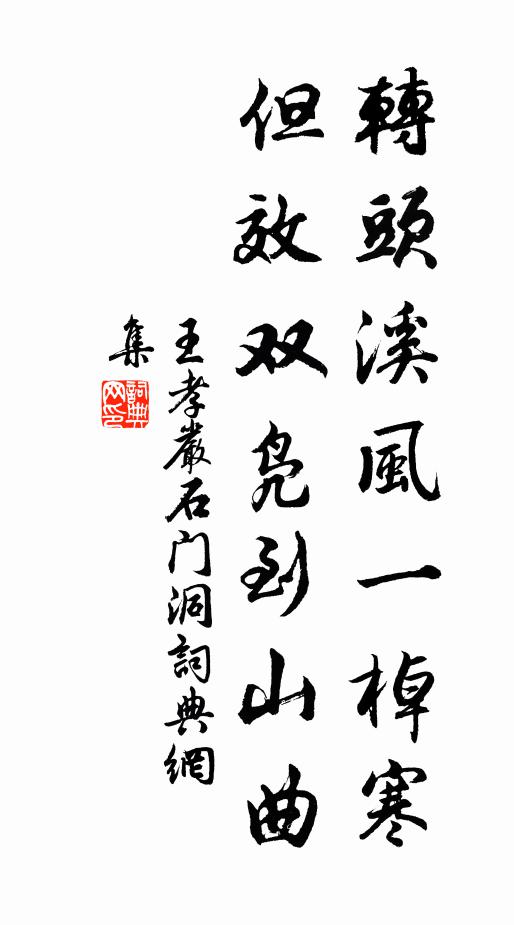 轉頭溪風一棹寒
但效双鳧到山曲
王孝嚴石门洞詞典網
集
詞典
网印